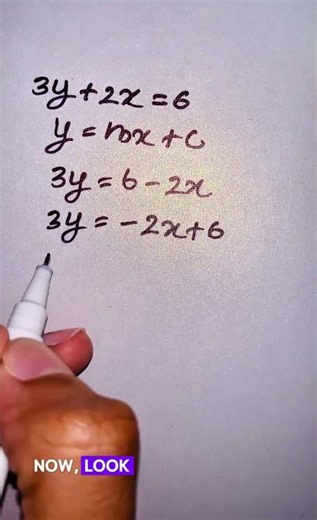 3y+2x=6
y=mx+c
3y=6-2x
3y=-2x+6
NOW, LOOK